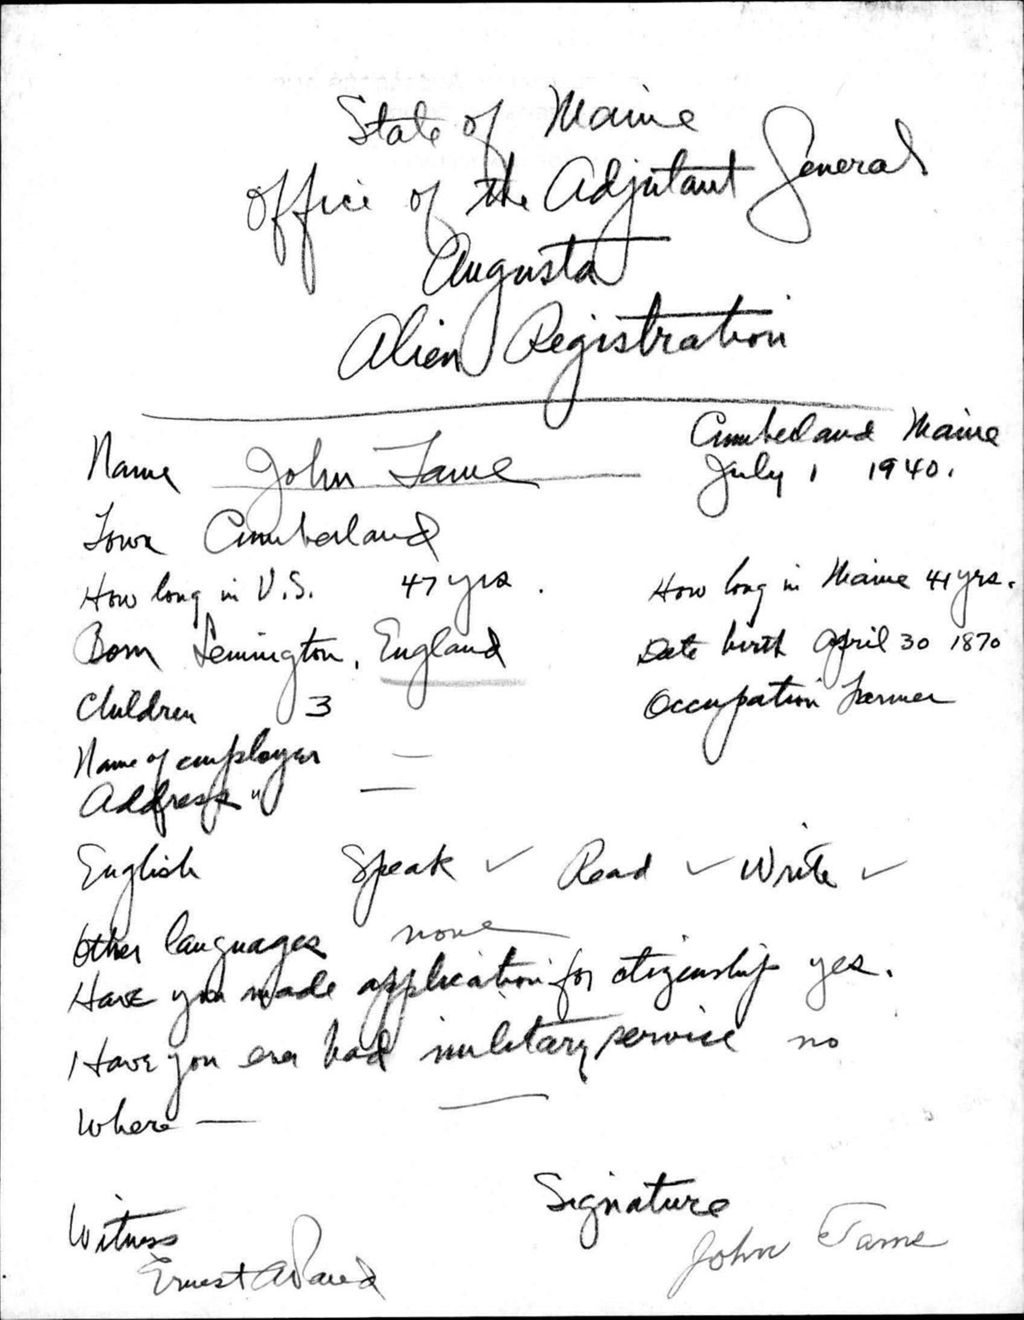 State of Maine
Office of the Adjutant General
Augusta
Alien Registration
Cumberland Maine
Name John Tame July 1 1940.
Town Cumberland
How long in U.S. 47 yrs. How long in Maine 41 yrs.
Born Lemington, England Date birth April 30 1870
Children 3 Occupation Farmer
Name of employer —
Address " —
English Speak ✓ Read ✓ Write ✓
Other languages none
Have you made application for citizenship yes.
Have you ever had military service no
Where — —
Signature
Witness
Ernest A John Tame